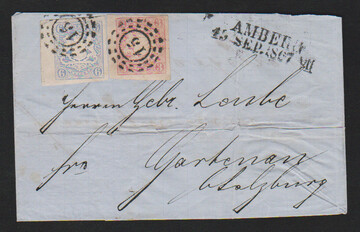 15 15
6 6 3
AMBERG
15 SEP. 1867 VII
Herren Gebr. Leube
fro
Gartenau
b/Salzburg